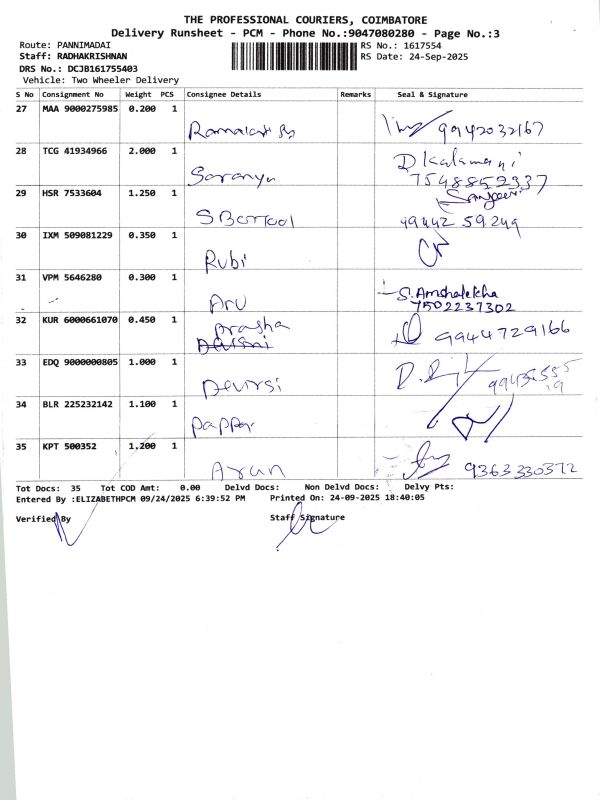 THE PROFESSIONAL COURIERS, COIMBATORE
Delivery Runsheet - PCM - Phone No.:9047080280 - Page No.:3
Route: PANNIMADAI
RS No.: 1617554
Staff: RADHAKRISHNAN
RS Date: 24-Sep-2025
DRS No.: DCJB161755403
Vehicle: Two Wheeler Delivery
S No Consignment No Weight PCS Consignee Details Remarks Seal & Signature
27 MAA 9000275985 0.200 1
9942032167
28 TCG 41934966 2.000 1
Saranya
D Kalamani
7548852337
29 HSR 7533604 1.250 1
Sanjeevi
99442 59249
30 IXM 509081229 0.350 1
Rubi
31 VPM 5646280 0.300 1
Aru
S. Amshalekha
7502237302
32 KUR 6000661070 0.450 1
Prasha
9944729166
33 EDQ 9000000805 1.000 1
Devirsi
34 BLR 225232142 1.100 1
Pappar
35 KPT 500352 1.200 1
Arun
9363330372
Tot Docs: 35 Tot COD Amt: 0.00 Delvd Docs: Non Delvd Docs: Delvy Pts:
Entered By :ELIZABETHPCM 09/24/2025 6:39:52 PM Printed On: 24-09-2025 18:40:05
Verified By Staff Signature